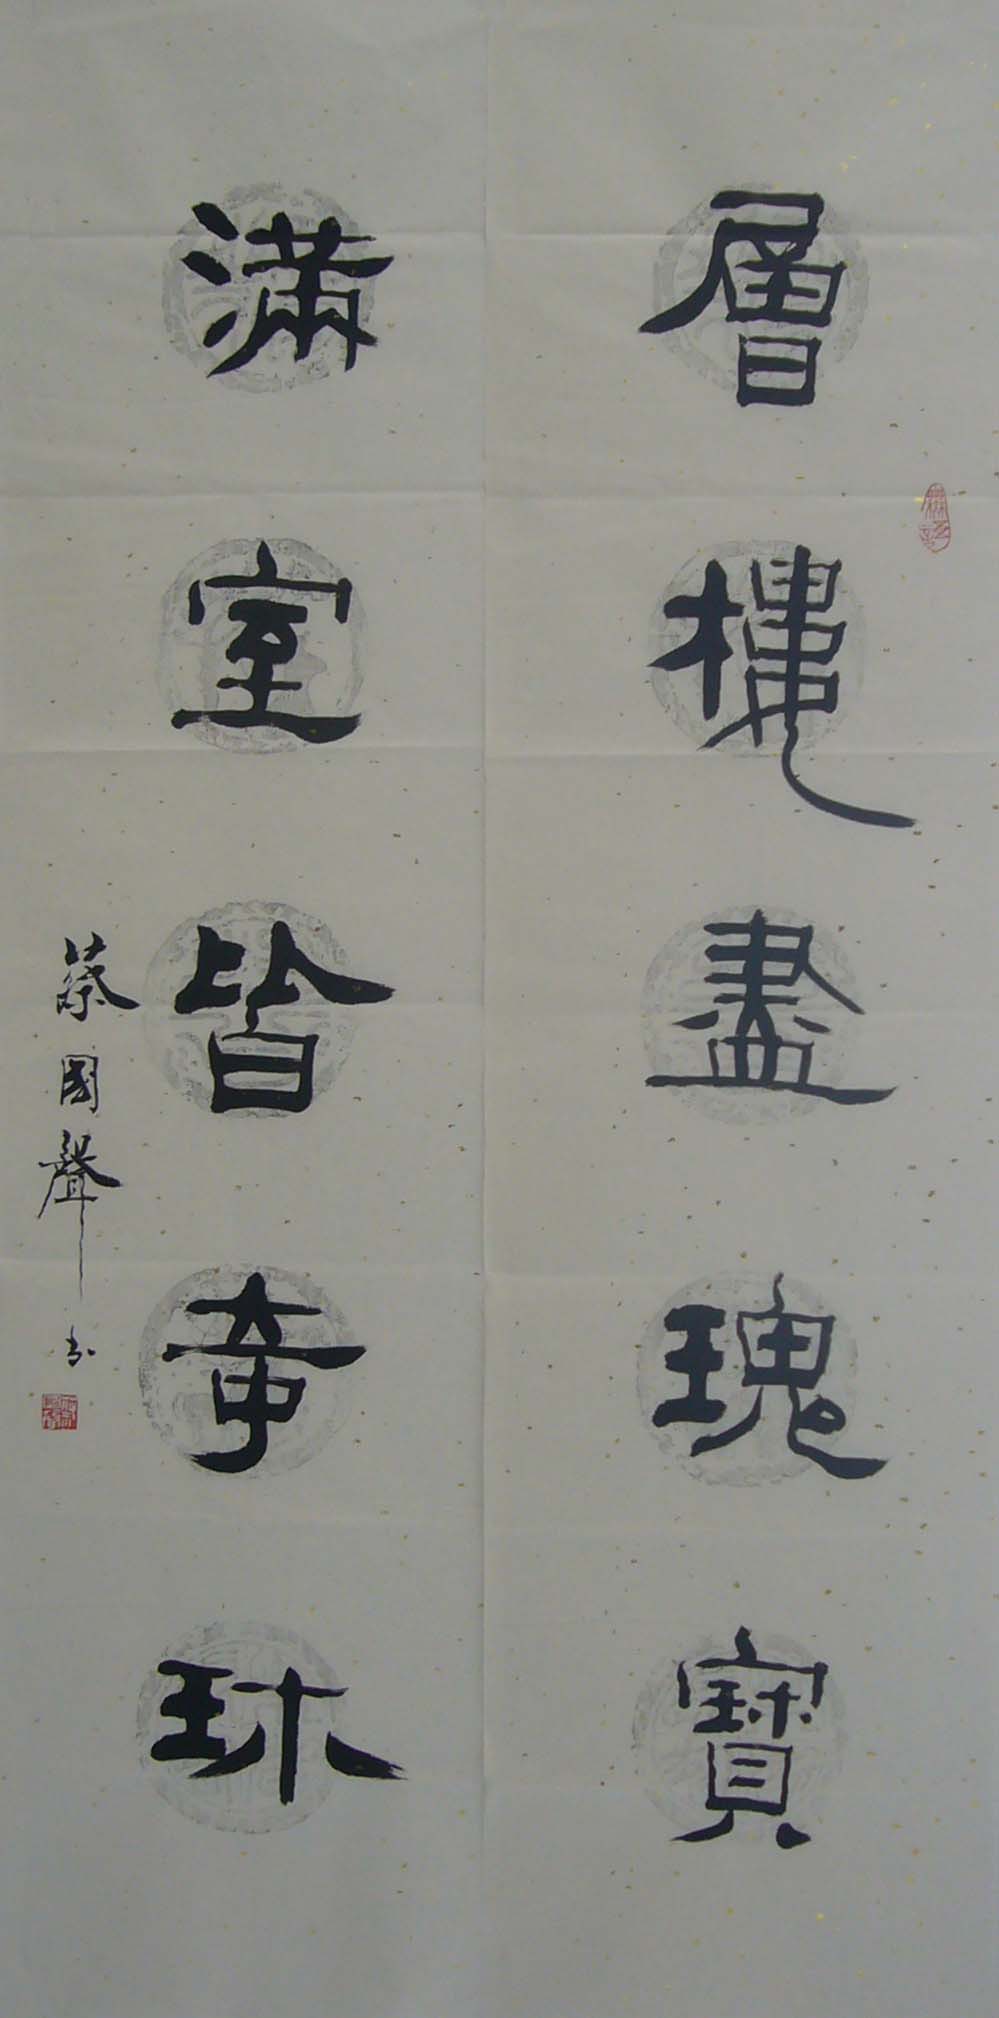 層樓盡瑰寶
滿室皆奇珠
蔡國聲書